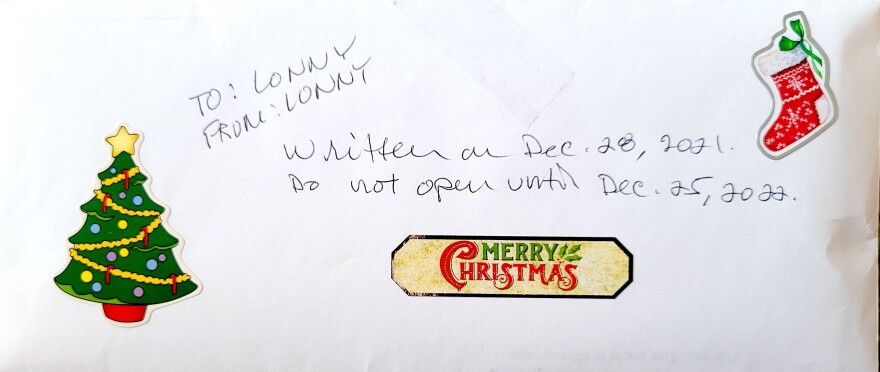 TO: LONNY
FROM: LONNY
Written on Dec. 28, 2021.
Do not open until Dec. 25, 2022.
MERRY
CHRISTMAS